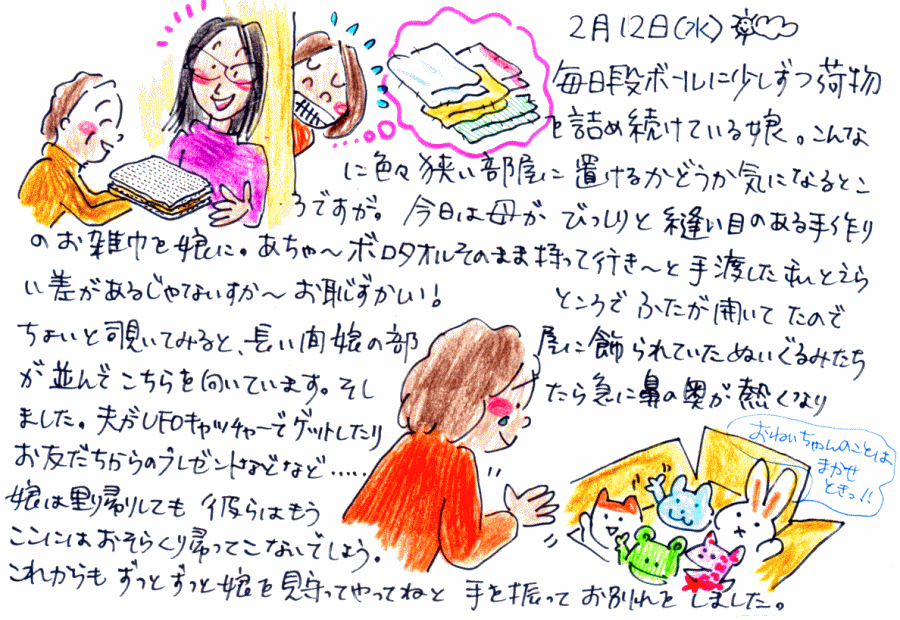 2月12日(水)
毎日段ボールに少しずつ荷物
を詰め続けている娘。こんな
に色々狭い部屋に置けるかどうか気になるとこ
ろですが。今日は母が びっしりと縫い目のある手作り
のお雑巾を娘に。あちゃ〜ボロタオルそのまま持って行き〜と手渡した私とえら
い差があるじゃないすか〜お恥ずかしい!
ところで ふたが開いてたので
ちょいと覗いてみると、長い間娘の部屋に飾られていたぬいぐるみたち
が並んでこちらを向いています。そしたら急に鼻の奥が熱くなり
ました。夫がUFOキャッチャーでゲットしたり
お友だちからのプレゼントなどなど.....
娘は里帰りしても 彼らはもう
ここにはおそらく帰ってこないでしょう。
これからもずっとずっと娘を見守ってやってねと 手を振って お別れをしました。
おねいちゃんのことは
まかせ
ときっ!!